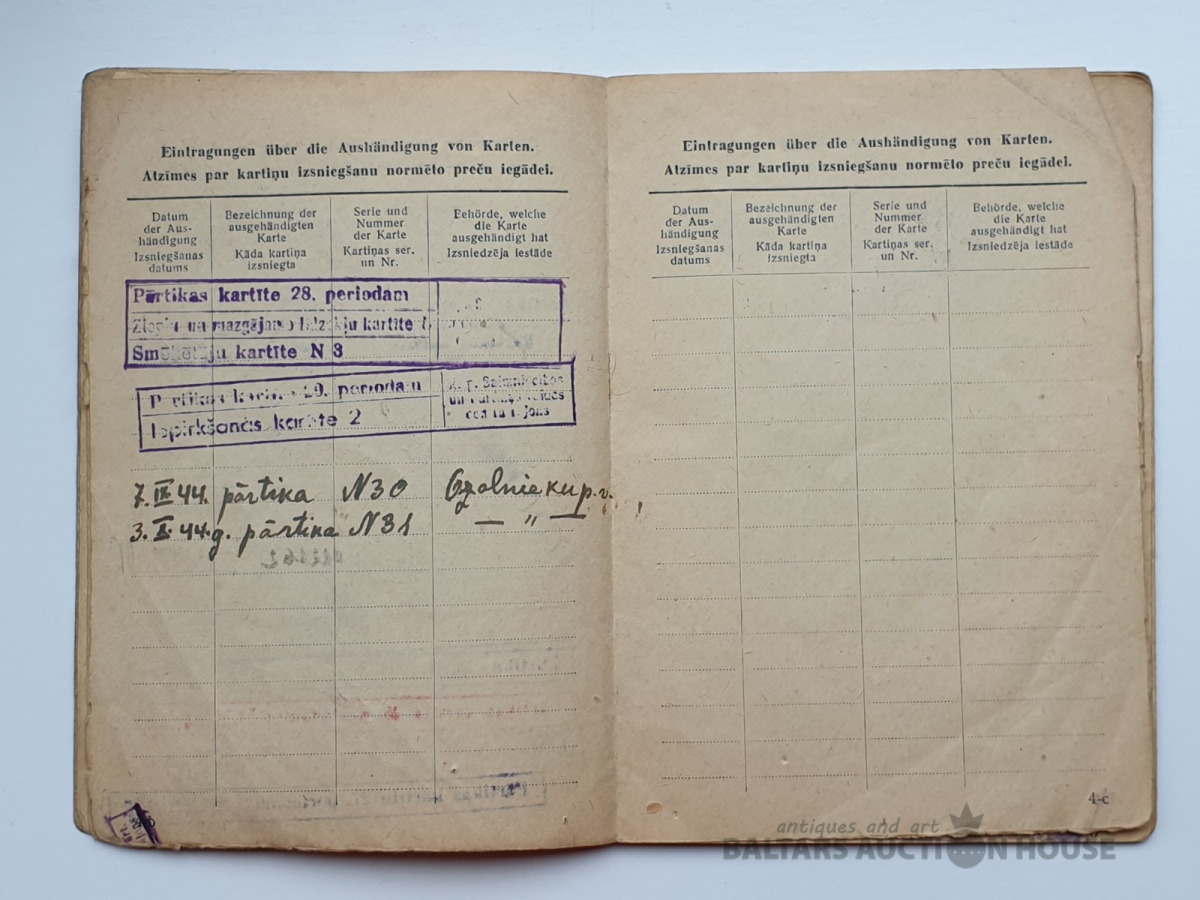 Eintragungen über die Aushändigung von Karten.
Atzīmes par kartiņu izsniegšanu normēto preču iegādei.
Datum
der Aus-
händigung
Izsniegšanas
datums
Bezeichnung der
ausgehändigten
Karte
Kāda kartiņa
izsniegta
Serie und
Nummer
der Karte
Kartiņas ser.
un Nr.
Behörde, welche
die Karte
ausgehändigt hat
Izsniedzēja iestāde
Pārtikas kartīte 28. periodam
Ziepju un mazgājamo kartīte
Smēķētāju kartīte N 3
Pārtikas 29. periodam
Iepirkšanās 2
un
7. IX 44. pārtika N30
3. X 44.g. pārtika N31
— „ —
Eintragungen über die Aushändigung von Karten.
Atzīmes par kartiņu izsniegšanu normēto preču iegādei.
Datum
der Aus-
händigung
Izsniegšanas
datums
Bezeichnung der
ausgehändigten
Karte
Kāda kartiņa
izsniegta
Serie und
Nummer
der Karte
Kartiņas ser.
un Nr.
Behörde, welche
die Karte
ausgehändigt hat
Izsniedzēja iestāde
4-c
antiques and art
BALTARS AUCTION HOUSE